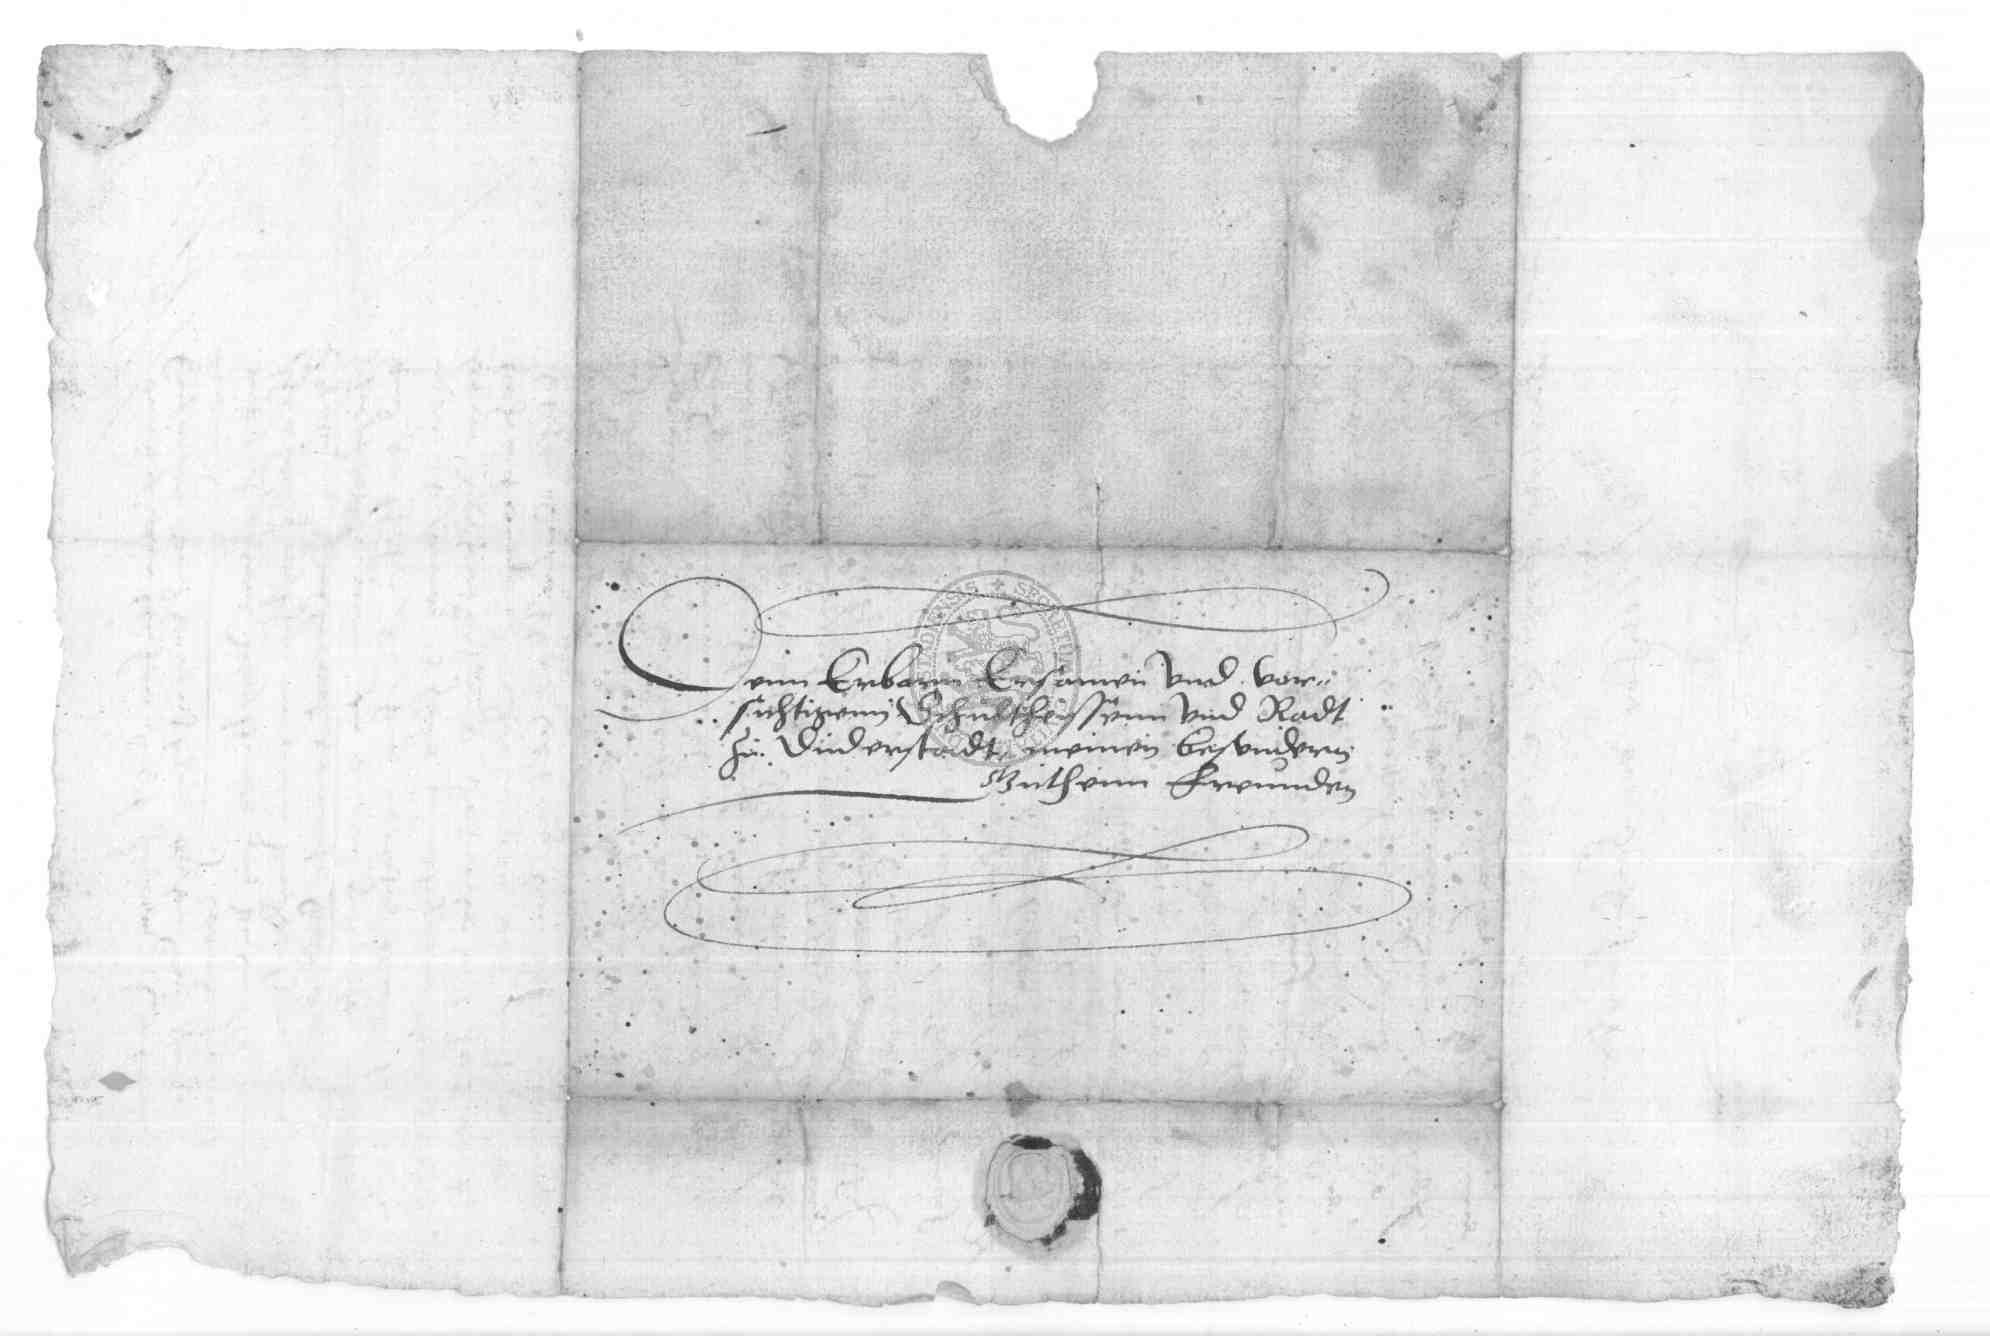 Denn Erbarn Ersamen vnd vor-
sichtigenn Schultheissenn vnd Radt
zu Duderstadt, meinen besundern
Guthenn Freunden